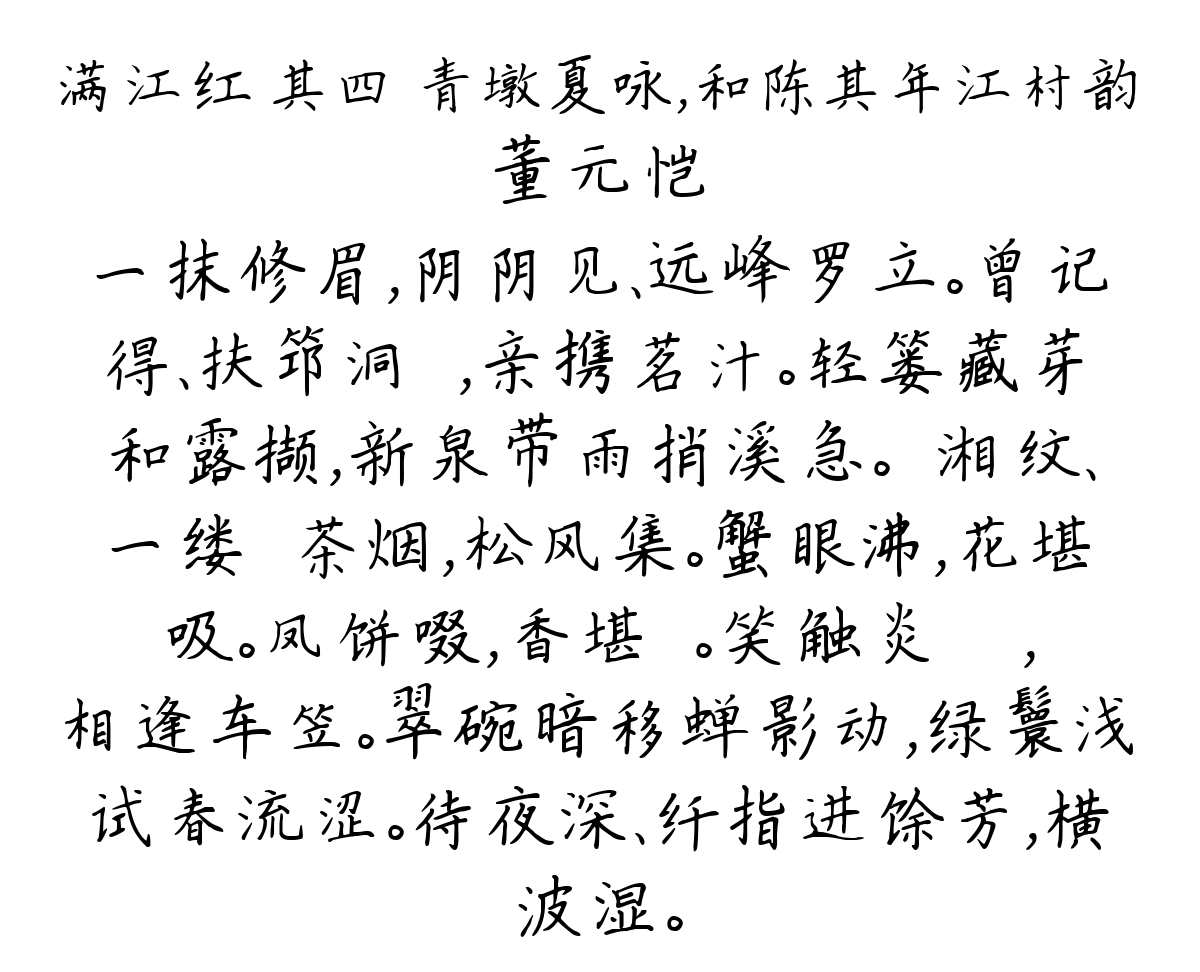 满江红 其四 青墩夏咏,和陈其年江村韵
董元恺
一抹修眉,阴阴见、远峰罗立。曾记
得、扶筇洞 ,亲携茗汁。轻篓藏芽
和露撷,新泉带雨捎溪急。湘纹、
一缕 茶烟,松风集。蟹眼沸,花堪
吸。凤饼啜,香堪 。笑触炎 ,
相逢车笠。翠碗暗移蝉影动,绿鬟浅
试春流涩。待夜深、纤指进馀芳,横
波湿。